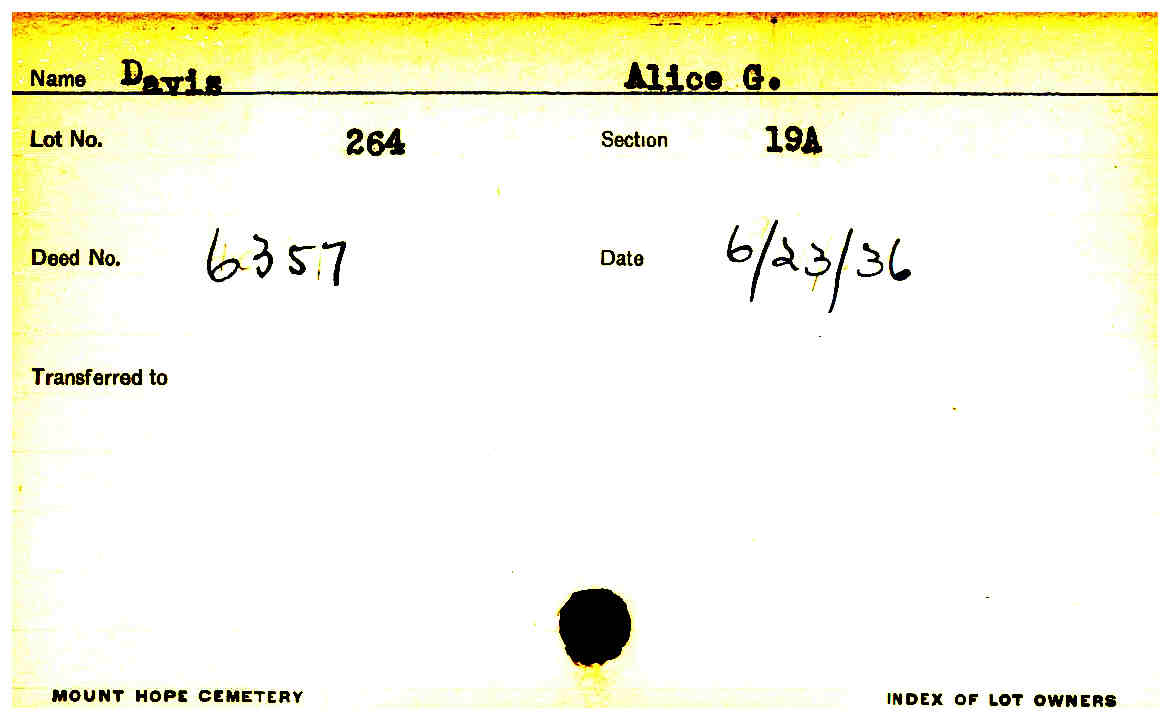 Name Davis Alice G.
Lot No. 264 Section 19A
Deed No. 6357 Date 6/23/36
Transferred to
MOUNT HOPE CEMETERY INDEX OF LOT OWNERS